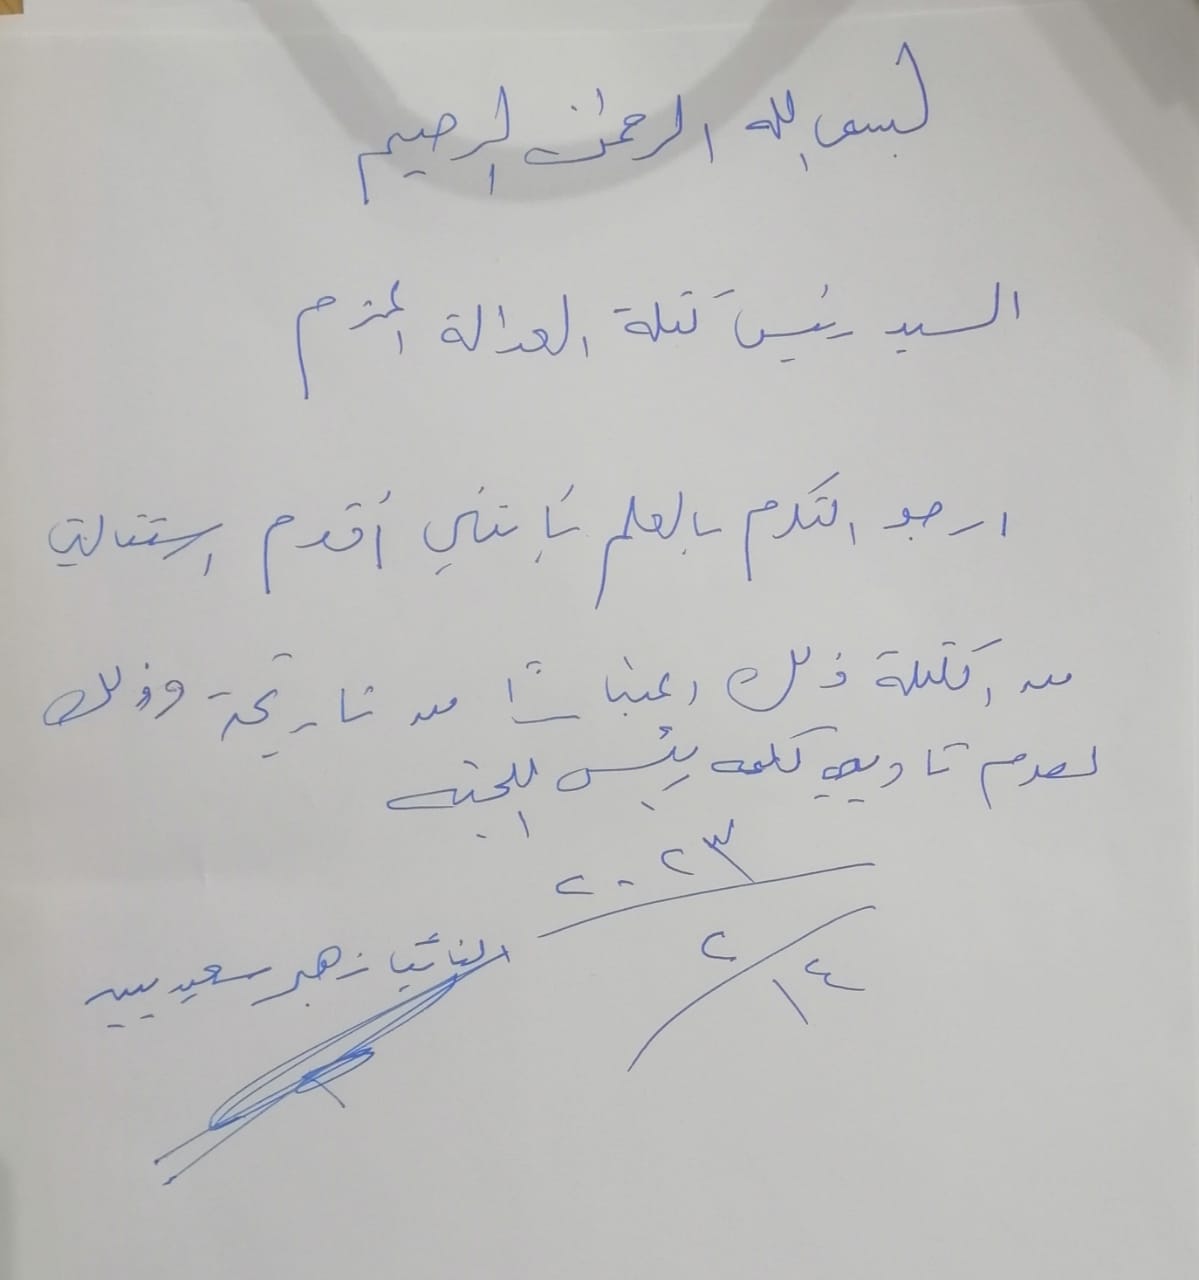 بسم الله الرحمن الرحيم
السيد رئيس كتلة العدالة المحترم
ارجو التكرم بالعلم بأنني أقدم استقالتي
من الكتلة وذلك اعتباراً من تاريخه وذلك
لعدم كلمة رئيس اللجنة
٢٠٢٣
٢
١٤
النائب زهير سعيد